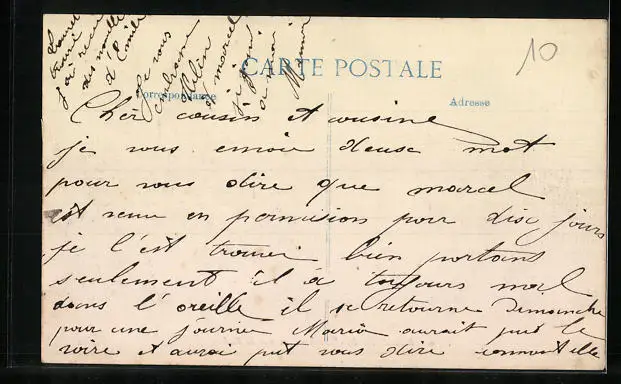 10
CARTE POSTALE
Correspondance
Adresse
Cher cousin et cousine
je vous envoie deusc mot
pour vous dire que marcel
est venu en permision pour disc jours
je l'est trouver bien portans
seulement il à toujours mal
dans l'oreille il se retourne Dimanche
pour une journee Maria aurait put le
voire et aurai put vous dire comment elle
trouve
j'ai recu
des nouvelle
d'Emile
Je vous
embrasse
Helen
et marcel